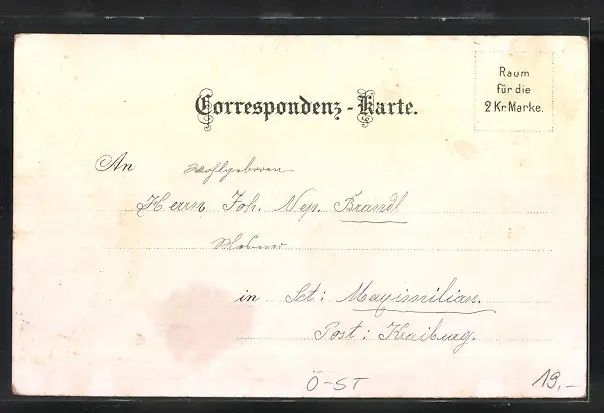 Correspondenz-Karte.
Raum
für die
2 Kr. Marke.
An Wohlgeboren
Herrn Joh. Nep. Brandl
in Sct: Mayimilian.
Post: Kraiburg.
Ö-ST
19,-